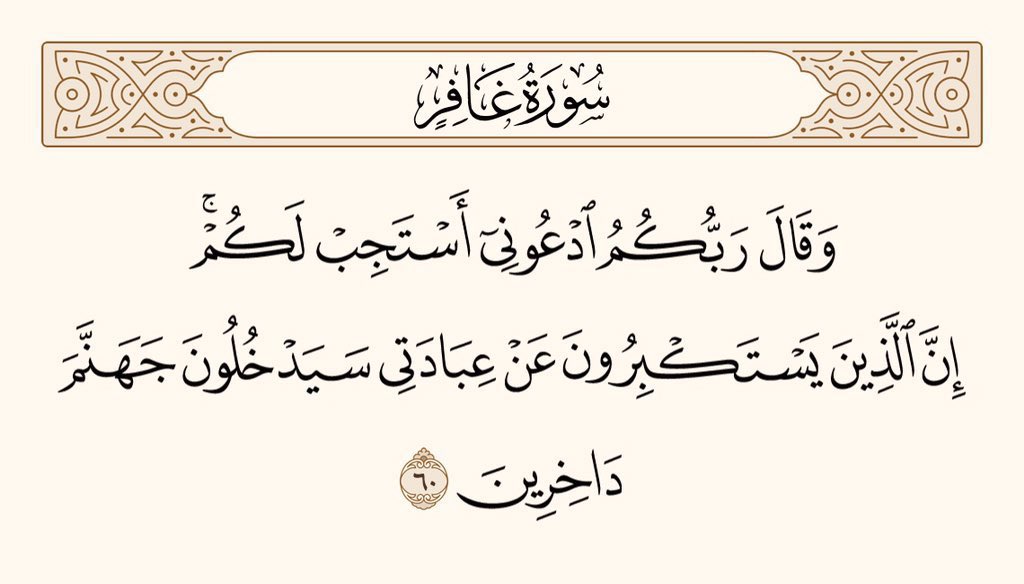 سُورَةُ غَافِرٍ
وَقَالَ رَبُّكُمُ ٱدۡعُونِيٓ أَسۡتَجِبۡ لَكُمۡۚ
إِنَّ ٱلَّذِينَ يَسۡتَكۡبِرُونَ عَنۡ عِبَادَتِي سَيَدۡخُلُونَ جَهَنَّمَ
دَاخِرِينَ ٦٠